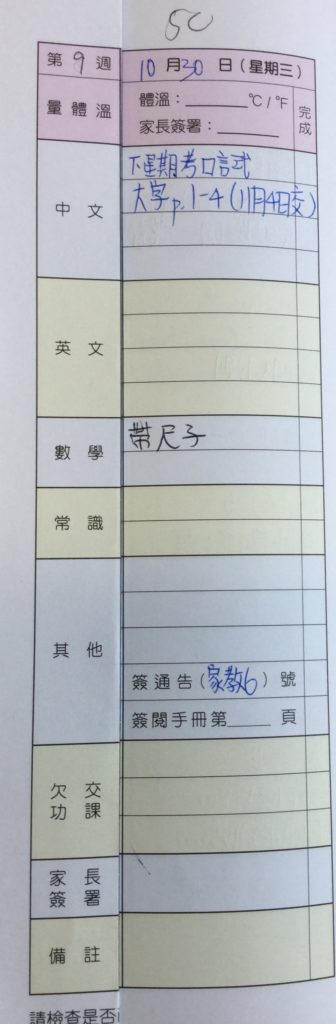 5C
第9週
10月30日(星期三)
量體溫
體溫：______°C/°F
家長簽署：______
完成
中文
下星期考口試
大字p.1-4(11月4日交)
英文
數學
帶尺子
常識
其他
簽通告(家教6)號
簽閱手冊第____頁
欠交功課
家長簽署
備註
請檢查是否